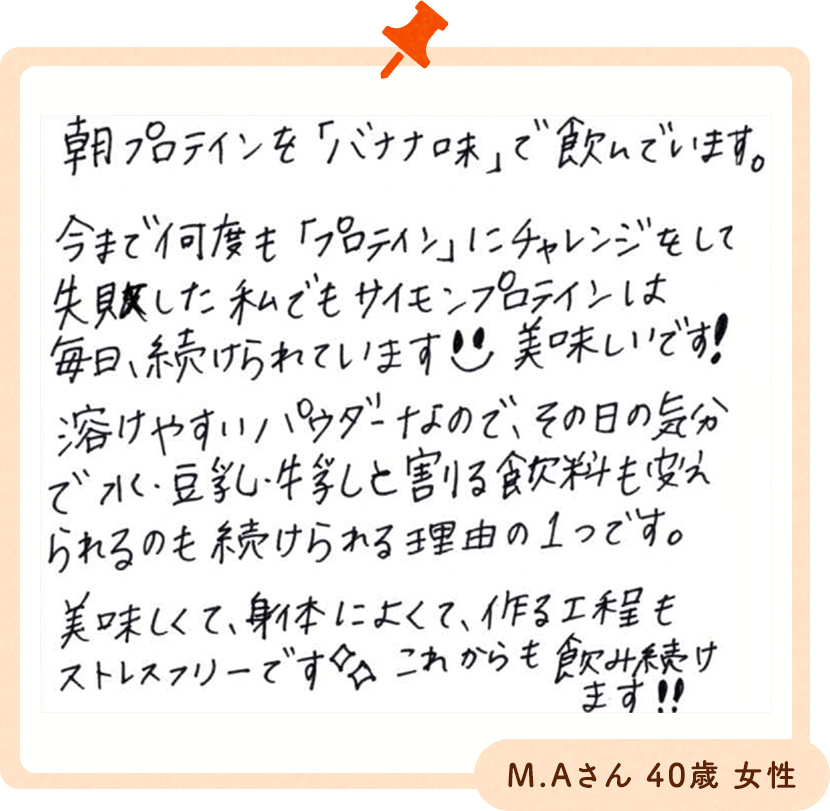 朝プロテインを「バナナ味」で飲んでいます。
今まで何度も「プロテイン」にチャレンジをして
失敗した私でもサイモンプロテインは
毎日、続けられています 美味しいです!
溶けやすいパウダーなので、その日の気分
で水・豆乳・牛乳と割る飲料も変え
られるのも続けられる理由の1つです。
美味しくて、身体によくて、作る工程も
ストレスフリーです これからも飲み続け
ます!!
M.Aさん 40歳 女性